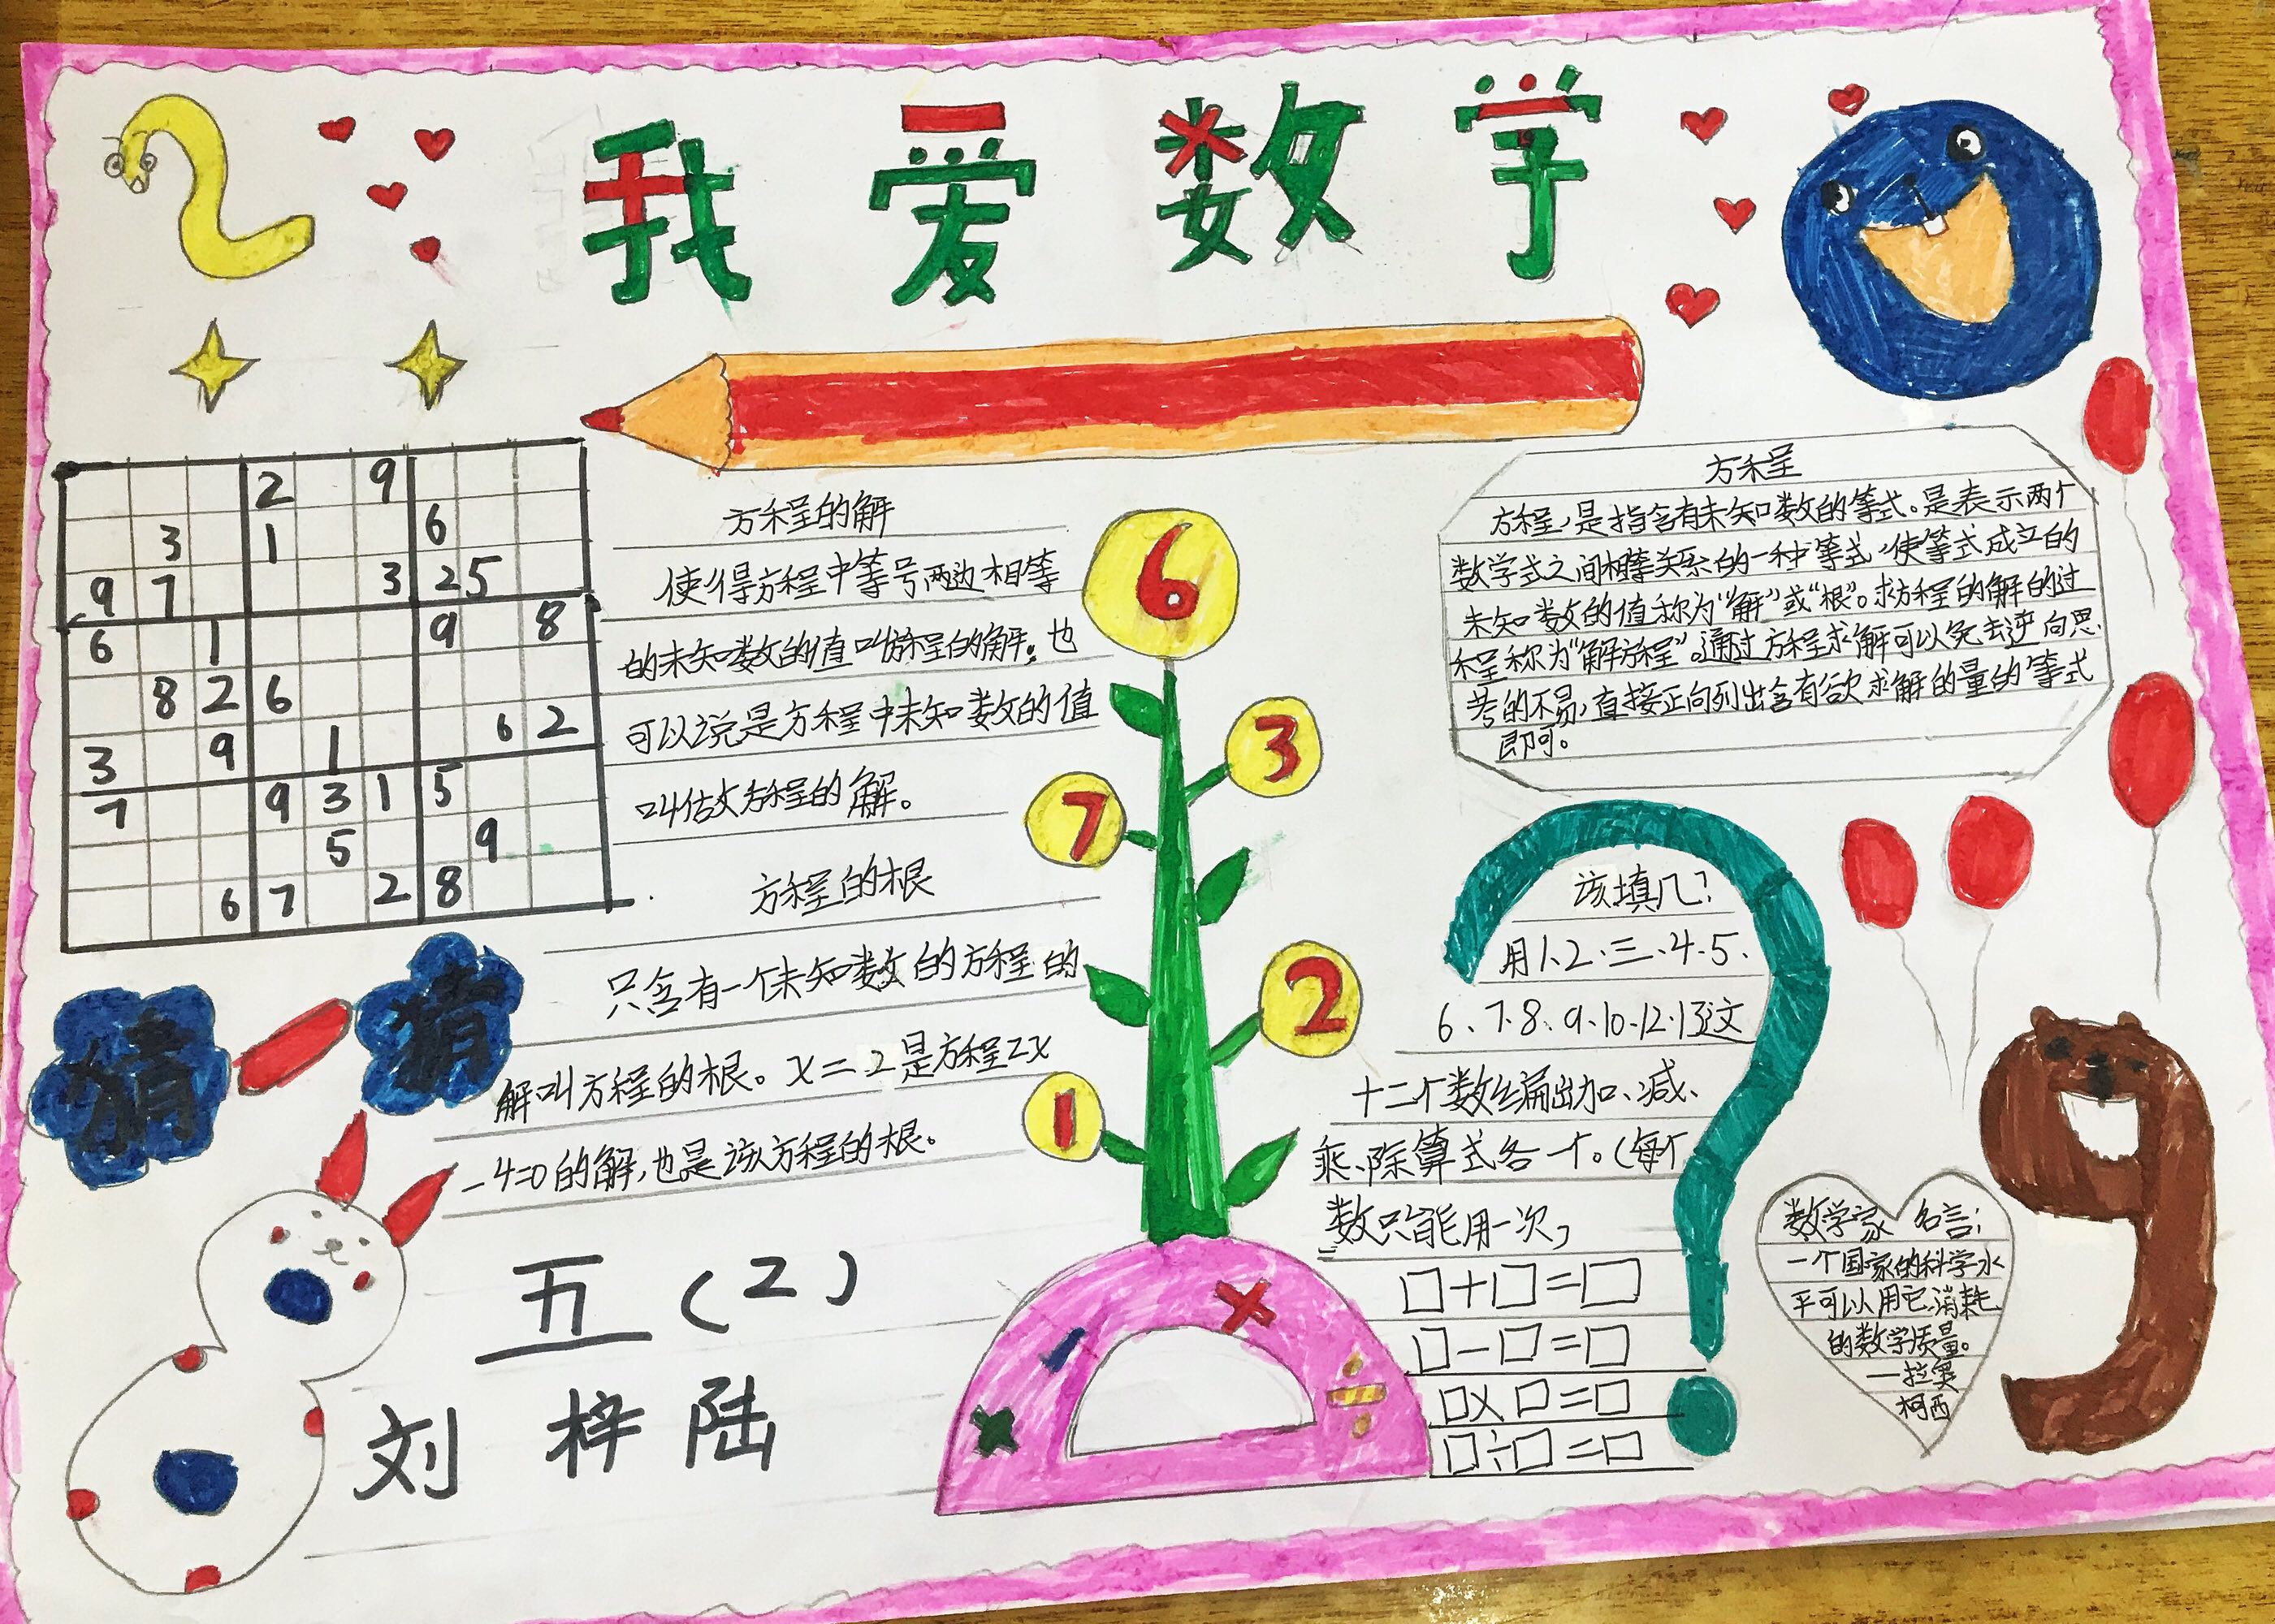 我爱数学
2 9
3 1 6
9 7 3 2 5
6 1 9 8
8 2 6
3 9 1 6 2
7 9 3 1 5
5 9
6 7 2 8
方程的解
使得方程中等号两边相等
的未知数的值叫做方程的解。也
可以说是方程中未知数的值
叫做方程的解。
方程的根
只含有一个未知数的方程的
解叫方程的根。x=2是方程2x
-4=0的解,也是该方程的根。
猜-猜
五(2)
刘梓陆
6
3
7
2
1
- × ÷ +
方程
方程,是指含有未知数的等式。是表示两个
数学式之间相等关系的一种等式,使等式成立的
未知数的值称为“解”或“根”。求方程的解的过
程称为“解方程”。通过方程求解可以免去逆向思
考的不易,直接正向列出含有欲求解的量的等式
即可。
该填几?
用1、2、三、4、5、
6、7、8、9、10、12、13这
十二个数编出加、减、
乘、除算式各一个。(每个
数只能用一次)
□+□=□
□-□=□
□×□=□
□÷□=□
数学家 名言:
一个国家的科学水
平可以用它消耗
的数学质量。
—拉奥
柯西
9